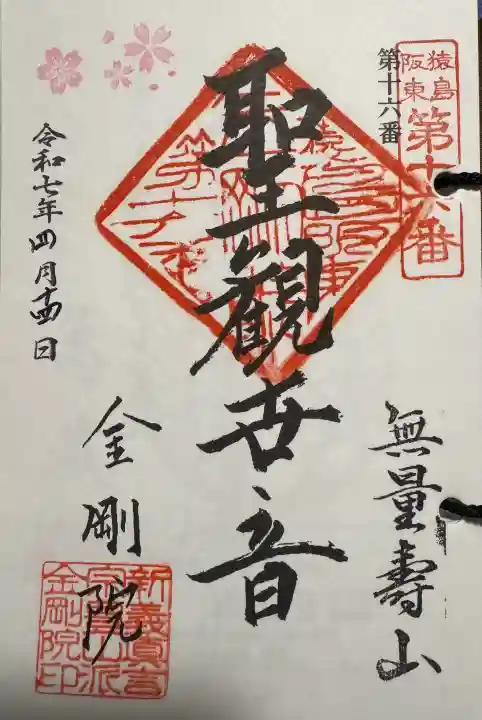 猿島
阪東
第十六番
第十六番
無量壽山
聖觀世音
令和七年四月十四日
金剛院
新義真言
宗豊山派
金剛院印